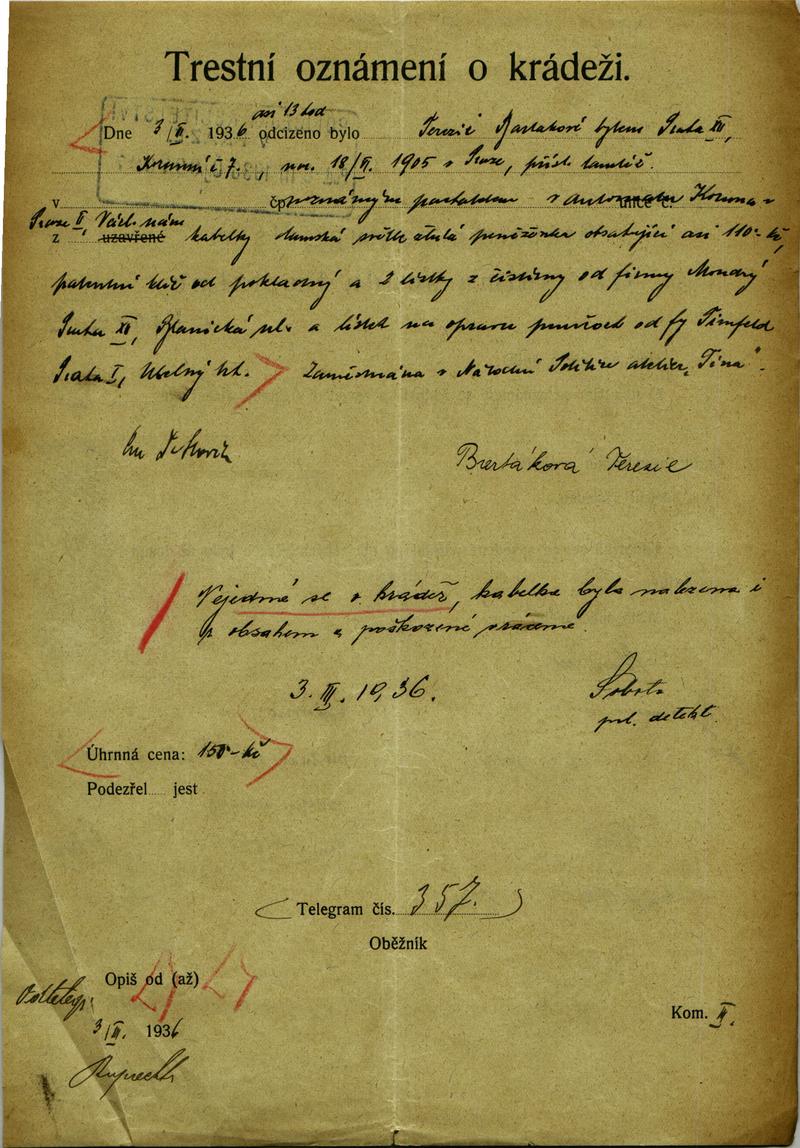 Trestní oznámení o krádeži.
asi 13 hod
Dne 3/III. 1936 odcizeno bylo Terezii Bartákové bytem Praha XII,
Korunní č 7., nar. 18/VI. 1905 v Praze, přísl. tamtéž.
v neznámým pachatelem v Koruna v
Praze II, Václ. nám
z uzavřené kabelky dámská peněženka obsahující asi 110.- kč,
patentní klíč od pokladny a 2 lístky z čistírny od firmy Mondrý
Praha XII, Blanická ul. a lístek na opravu punčoch od fy
Praha I, Uhelný trh. Zaměstnána v Národní Politice atelier „Tina".
Bartáková Terezie
Nejedná se o krádež, kabelka byla nalezena i
s obsahem a poškozené vrácena.
3. III. 1936.
Sobota
pol. detekt.
Úhrnná cena: 150- kč
Podezřel jest
Telegram čís. 357.
Oběžník
Opiš od (až)
3/III. 1936
Ruprecht
Kom. II.